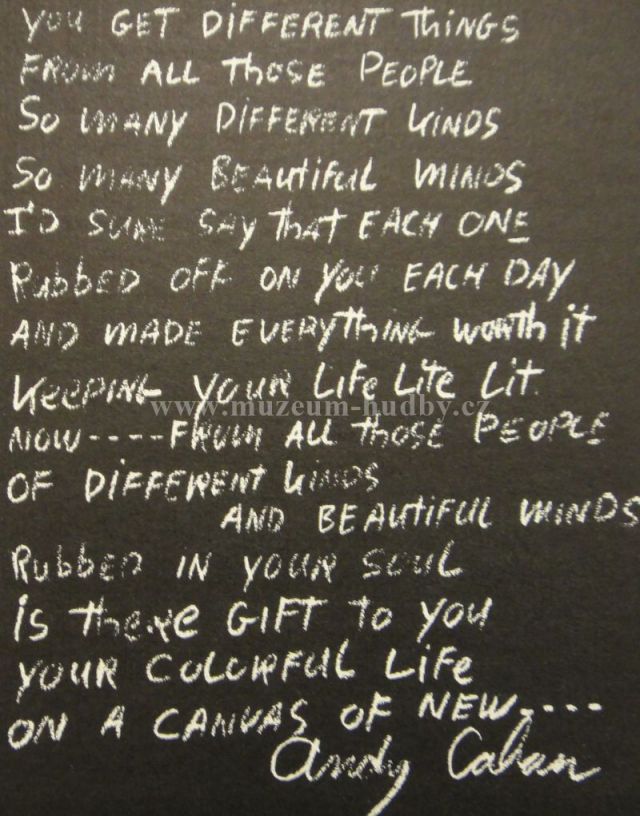 YOU GET DIFFERENT THINGS
FROM ALL THOSE PEOPLE
SO MANY DIFFERENT KINDS
SO MANY BEAUTIFUL MINDS
I'D SURE SAY THAT EACH ONE
RUBBED OFF ON YOU EACH DAY
AND MADE EVERYTHING WORTH IT
KEEPING YOUR LIFE LITE LIT.
www.muzeum-hudby.cz
NOW----FROM ALL THOSE PEOPLE
OF DIFFERENT KINDS
AND BEAUTIFUL MINDS
RUBBED IN YOUR SOUL
IS THERE GIFT TO YOU
YOUR COLORFUL LIFE
ON A CANVAS OF NEW....
Andy Cahan